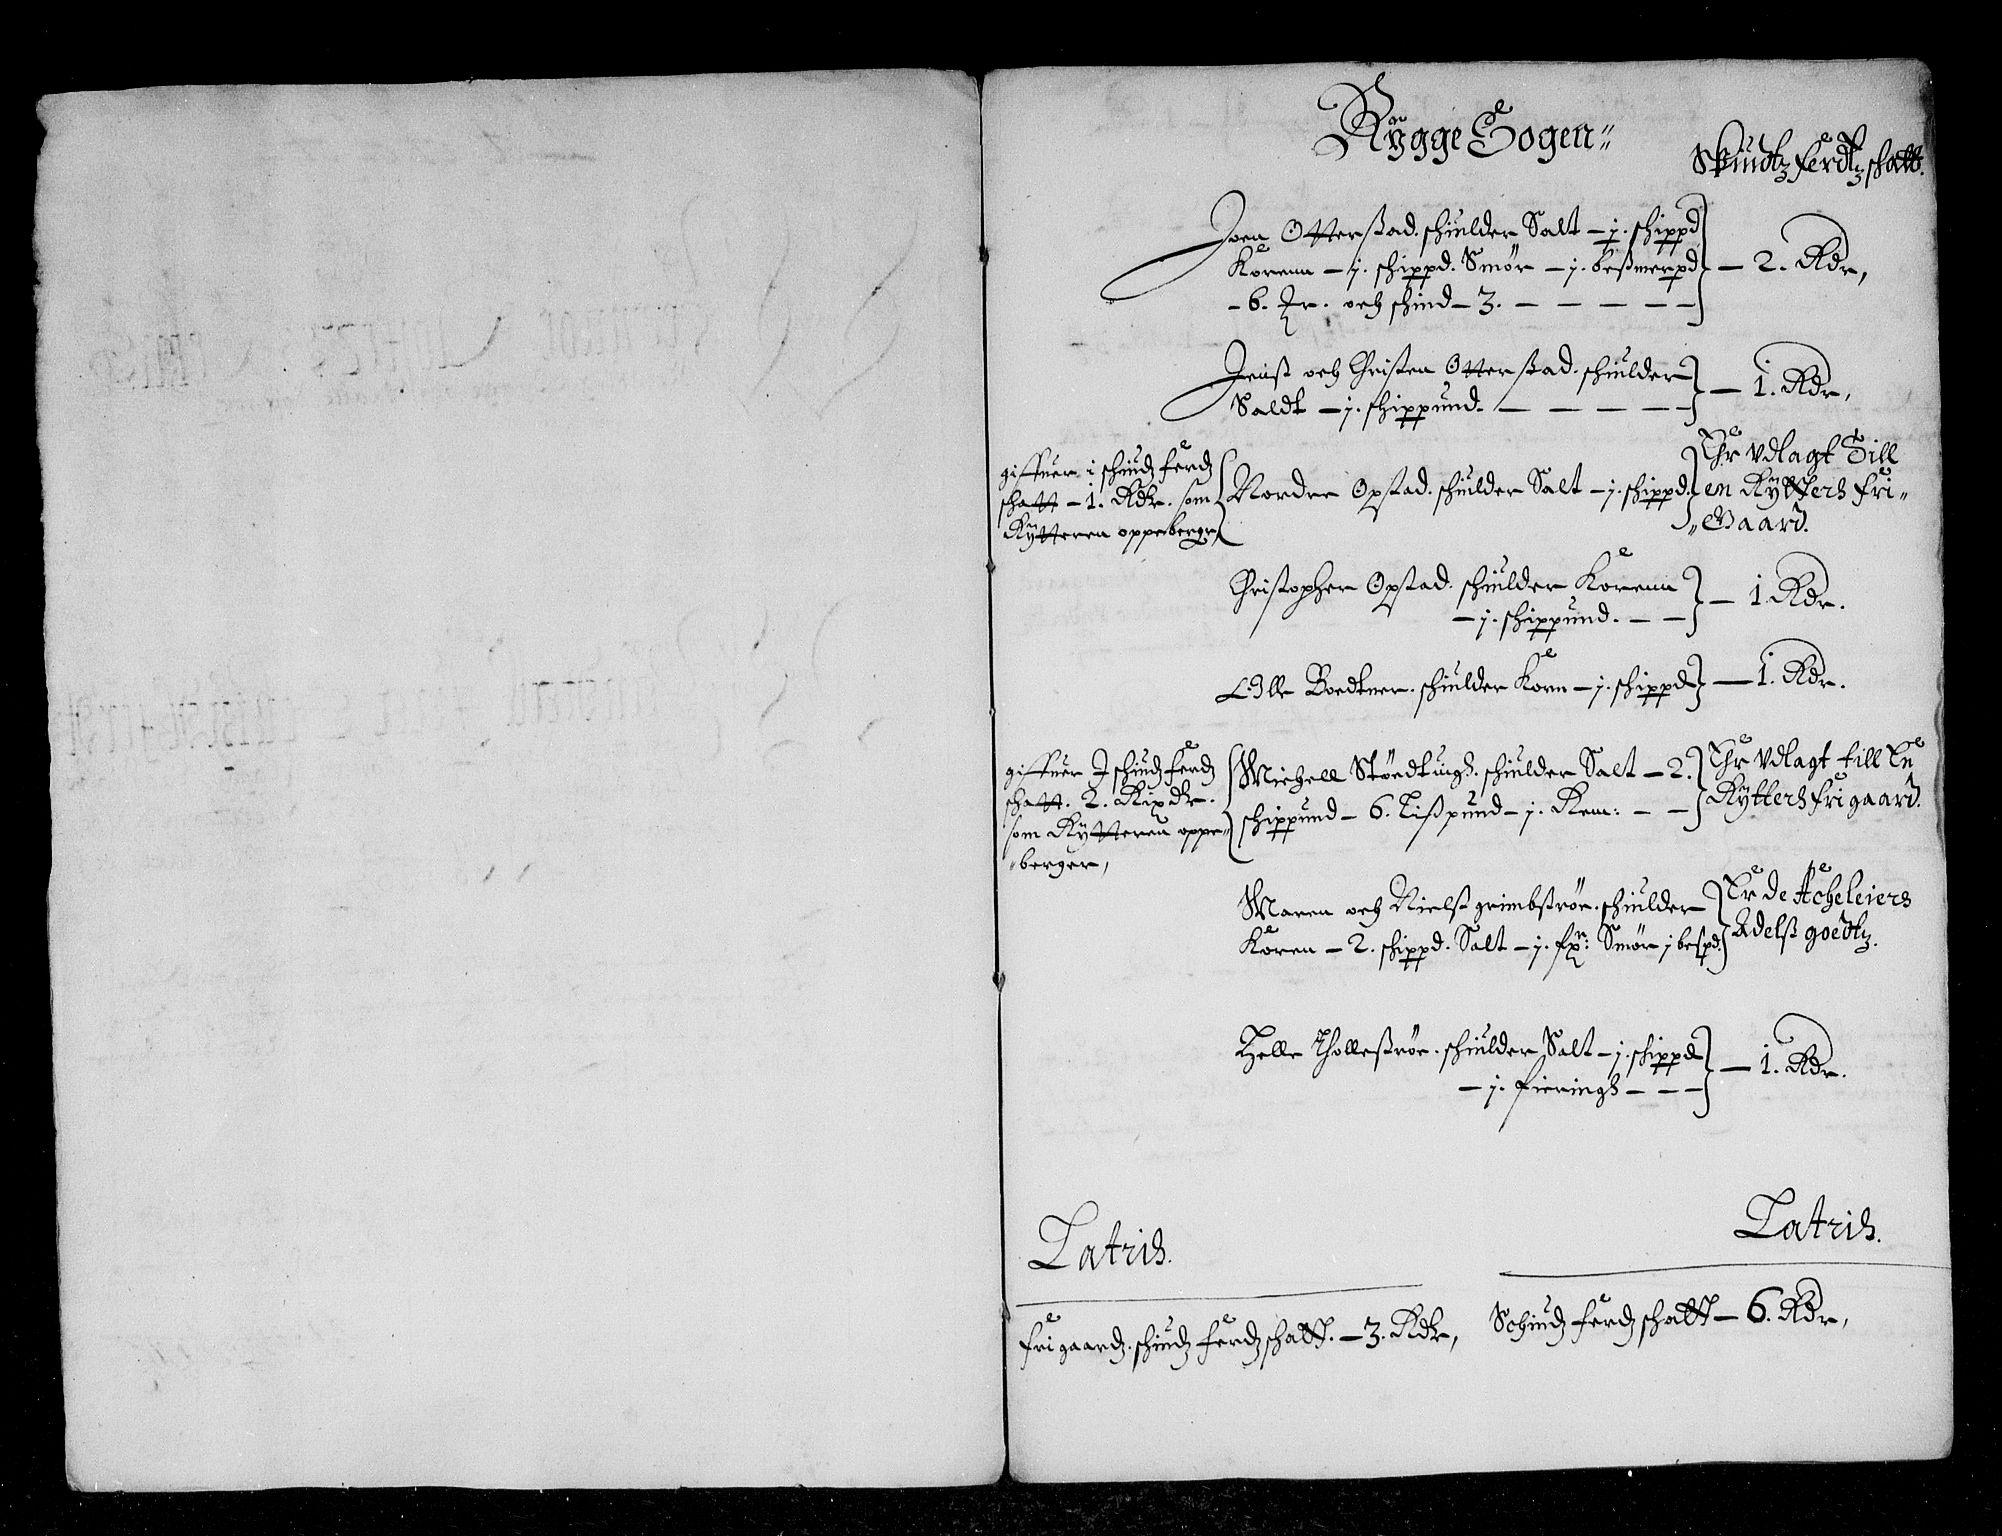 Rygge Sogen
Skiudtz ferdtz schatt.
Joen Otterstad. schiulder Salt – j. schippd
Korenn – j. schippd. Smør – j. beßmerpd – 2. Rdr,
– 6. och schind – 3. – – – – –
Jenß och Christen Otterstad. schiulder – 1. Rdr,
Saldt – j. schippund. – – – – –
giffuer i schiudz ferdz
schatt – 1. Rdr. som
Rytteren oppeberger,
Nordre Opstad. schiulder Salt – j. schippd.
Ehr vdlagt Till
en Rytters fri
Gaard.
Christopher Opstad. schiulder Korenn
– j. schippund. – – – 1. Rdr.
Olle Boedtner. schiulder Korn – j. schippd – 1. Rdr.
giffuer J schiudz ferdz
schatt. 2. Rixdr.
som Rytteren oppe
berger,
Michell Støedtuigh. schiulder Salt – 2.
schippund – 6. Lißpund – j. Rem: – –
Ehr Vdlagt till En
Rytters fri gaard.
Maren och Nielß grimbstrøe. schiulder
Koren – 2. schippd. Salt – j. Smør j bespd.
Er de Acheleiers
Adelß goedtz.
Helle Tholleßrøe. schiulder Salt – j. schippd
– j. fieringh – – – – 1. Rdr.
Latris.
frigaardz. schiudz ferdz schatt. – 3. Rdr,
Latris.
Schiudz ferdz schatt – 6. Rdr,